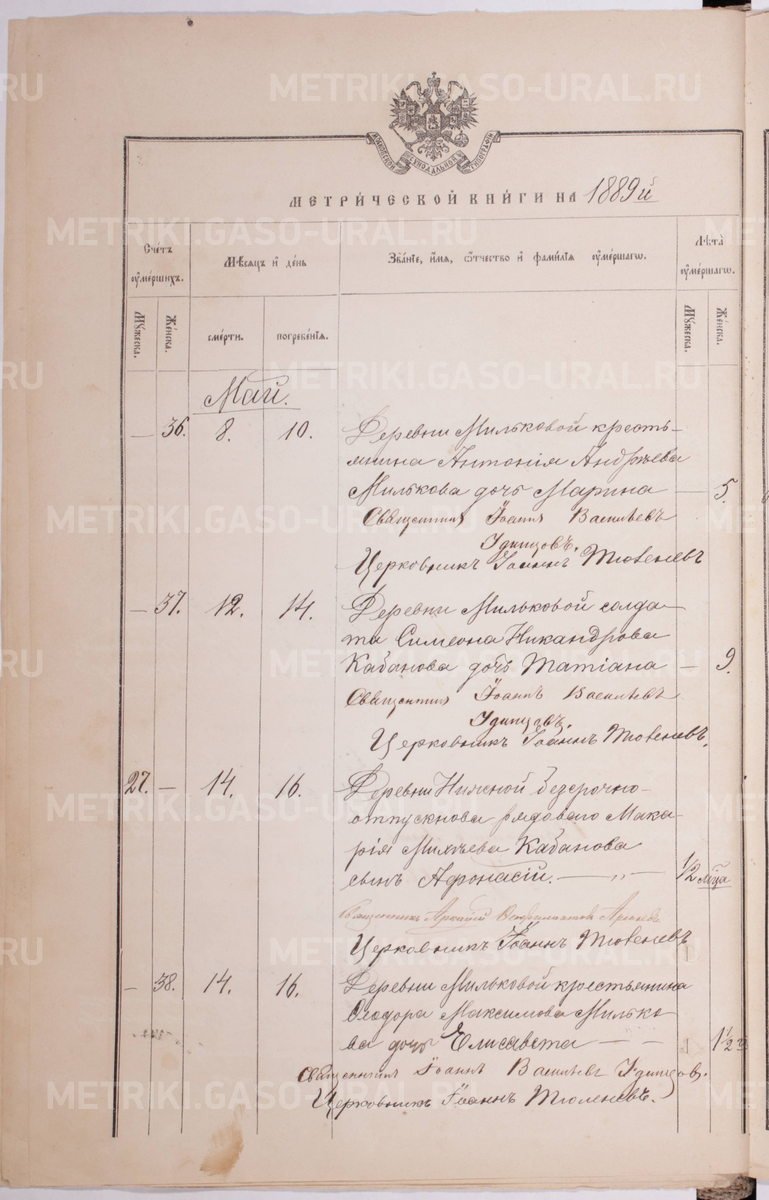 МЕТРИЧЕСКОЙ КНИГИ НА 1889й
Счетъ умершихъ.
Мѣсяцъ и день
Званіе, имя, отчество и фамилія умершаго.
Лѣта умершаго.
Мужеска.
Женска.
смерти.
погребенія.
Мужеска.
Женска.
Май.
— 36. 8. 10. Деревни Мильковой кресть-
янина Антонія Андреева
Милькова дочь Марина — 5.
Священникъ Іоаннъ Васильевъ
Удинцовъ.
Церковникъ Іоаннъ Тюленевъ
— 37. 12. 14. Деревни Мильковой солда-
та Симеона Никандрова
Кабанова дочь Татіана — 9.
Священникъ Іоаннъ Васильевъ
Удинцовъ.
Церковникъ Іоаннъ Тюленевъ.
27. — 14. 16. Деревни Нижней безсрочно-
отпускнова рядоваго Мака-
рія Кабанова
сынъ Афонасій. — „ — 1/2 мѣца
Священникъ
Церковникъ Іоаннъ Тюленевъ
— 38. 14. 16. Деревни Мильковой крестьянина
Ѳеодора Максимова Милько-
ва дочь Елисавета — — 1 1/2 г
Священникъ Іоаннъ Васильевъ Удинцов.
Церковникъ Іоаннъ Тюленевъ.
METRIKI.GASO-URAL.RU